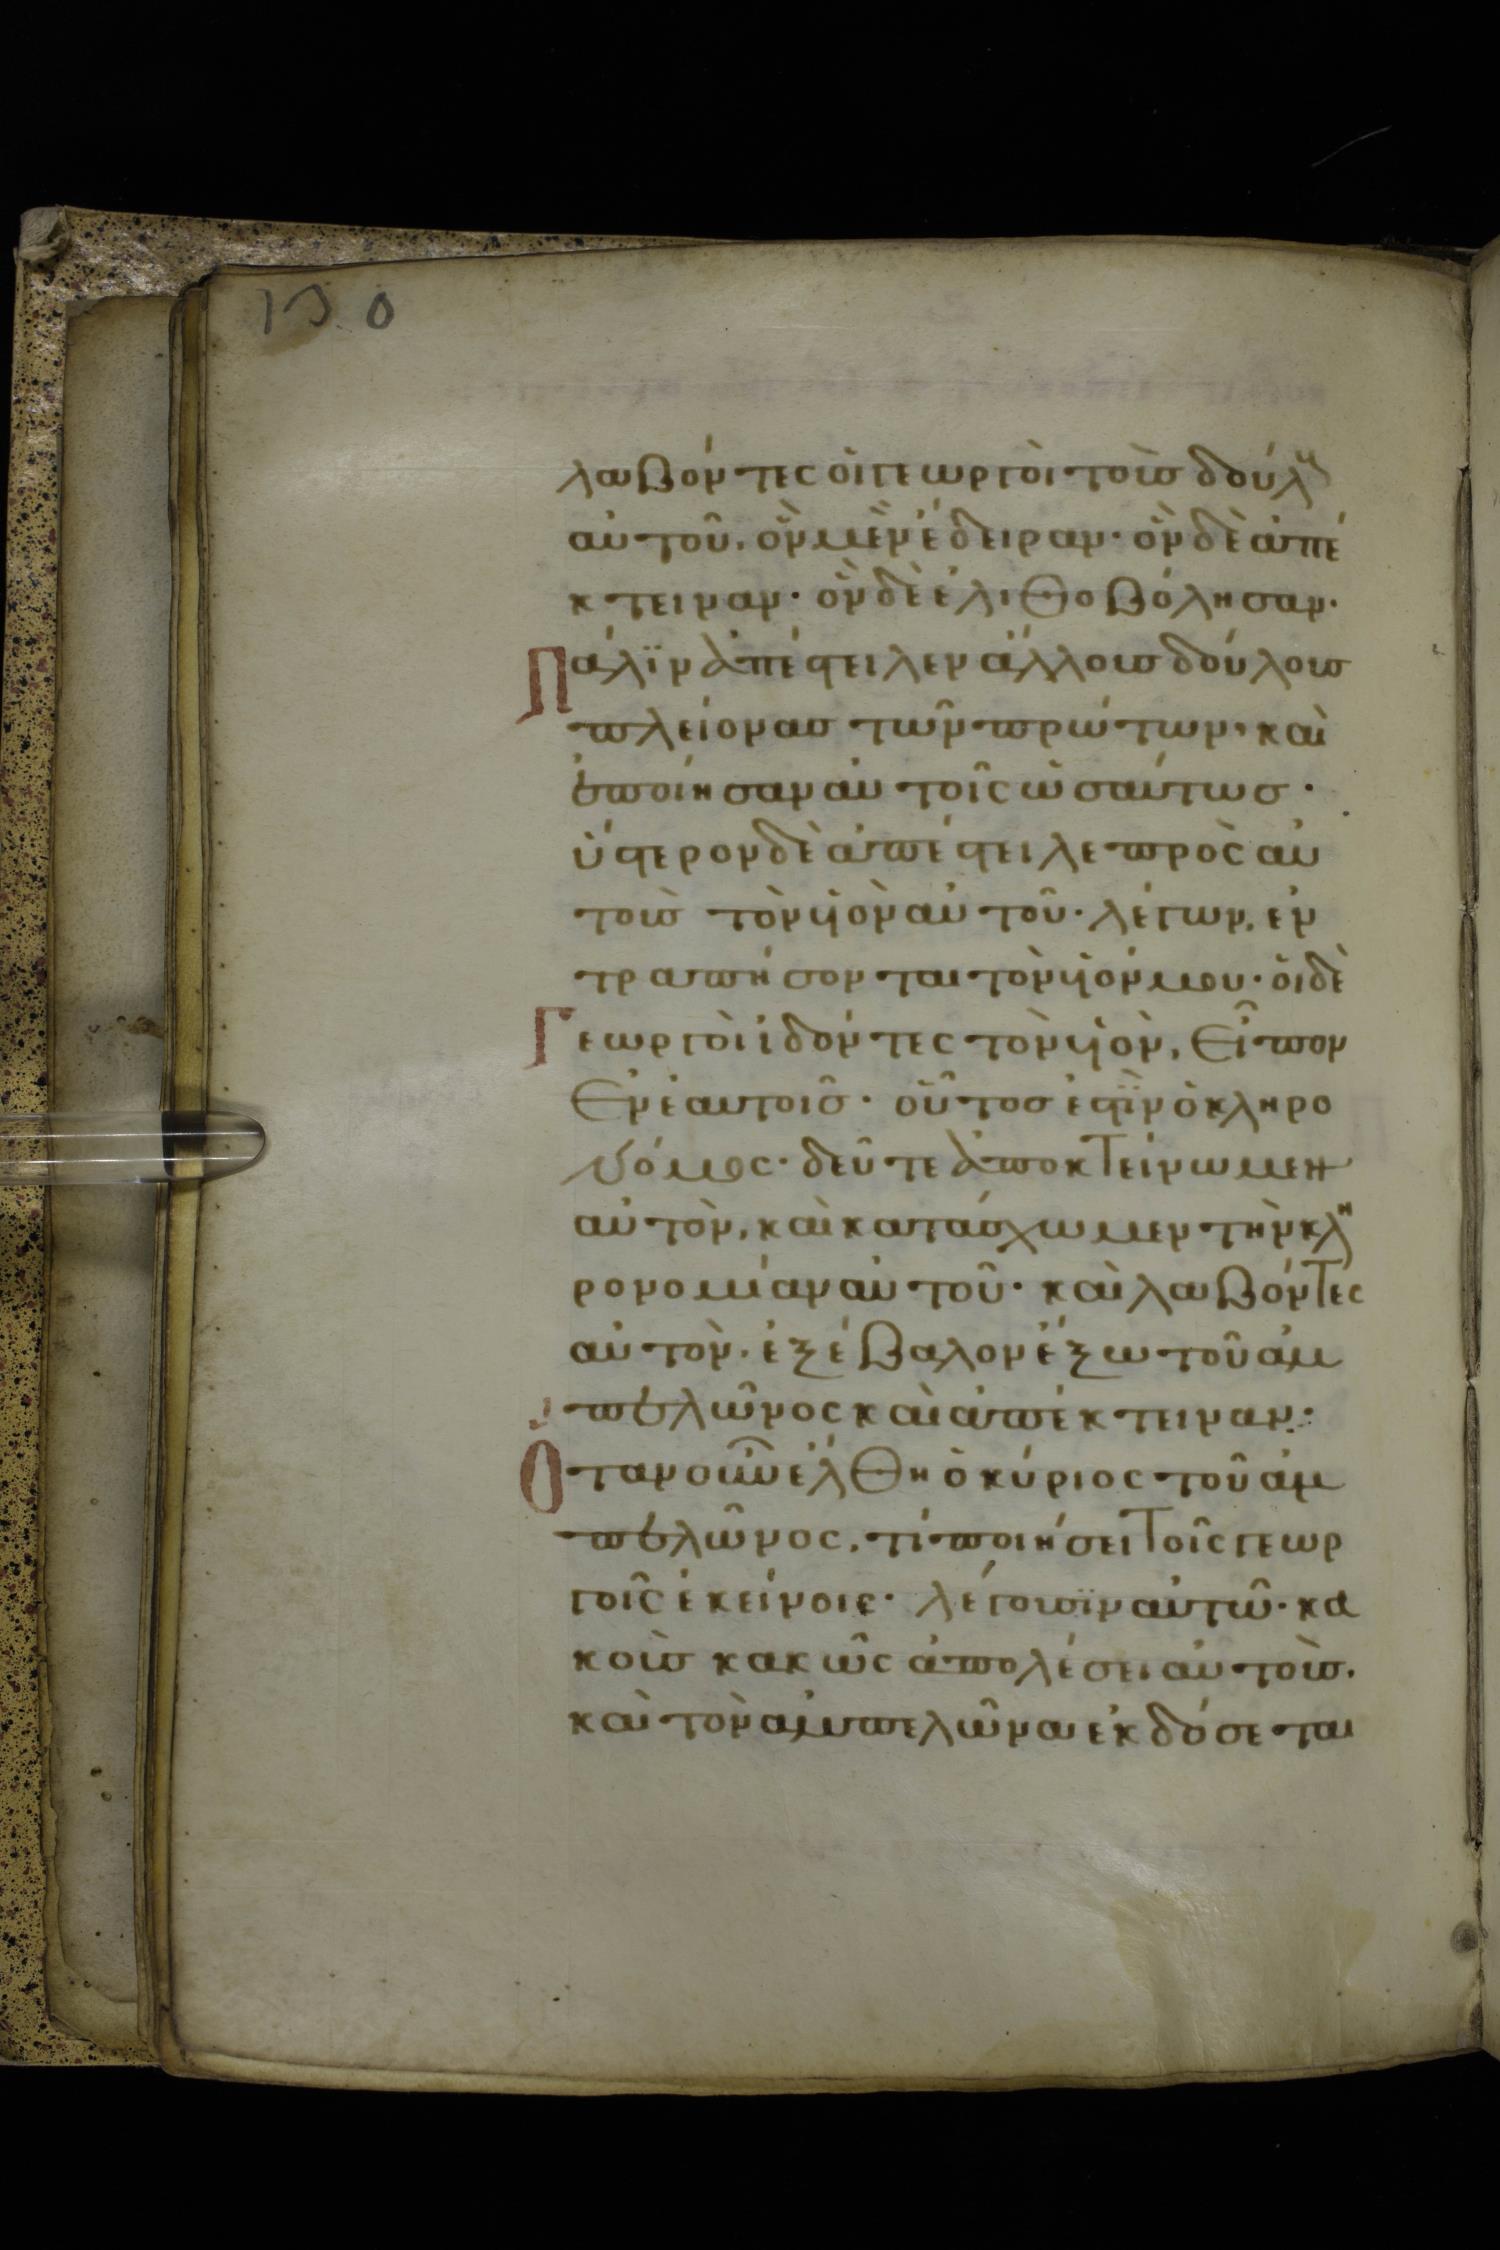 130
λαβόντες οἱ γεωργὸι τοὺσ δούλ(ους)
αὐτοῦ. ὃν μὲν ἔδειραν· ὃν δὲ ἀπέ
κτειναν· ὃν δὲ ἐλιθοβόλησαν·
Πάλϊν ἀπέστειλεν ἄλλουσ δούλουσ
πλείονασ τῶν πρώτων, καὶ
ἐποίησαν αὐτοῖς ὡσαύτωσ·
ὕστερον δὲ ἀπέστειλε πρὸς αὐ
τοὺσ τὸν ϋἱὸν αὐτοῦ· λέγων, ἐν
τραπήσονται τὸν ὑιόν μου· ὁι δὲ
Γεωργὸι ἰδόντες τὸν ὑιὸν, εἶπον
ἐν ἑαυτοισ͂· οὗτοσ ἐστϊν ὁ κληρο
νόμος· δεῦτε ἀποκτείνωμεν
αὐτὸν, καὶ κατάσχωμεν τὴν κλη
ρονομίαν αὐτοῦ· καὶ λαβόντες
αὐτὸν. ἐξέβαλον ἔξω τοῦ ἀμ
πελῶνος καὶ ἀπέκτειναν·
Ὅταν οὖν ἔλθη ὁ κύριος τοῦ ἀμ
πελῶνος, τί ποιήσει τοῖς γεωρ
γοῖς ἐκείνοις· λέγουσϊν αὐτῶ· κα
κοὺσ κακῶς ἀπολέσει αὐτοὺσ.
καὶ τὸν ἀμπελῶνα ἐκδόσεται